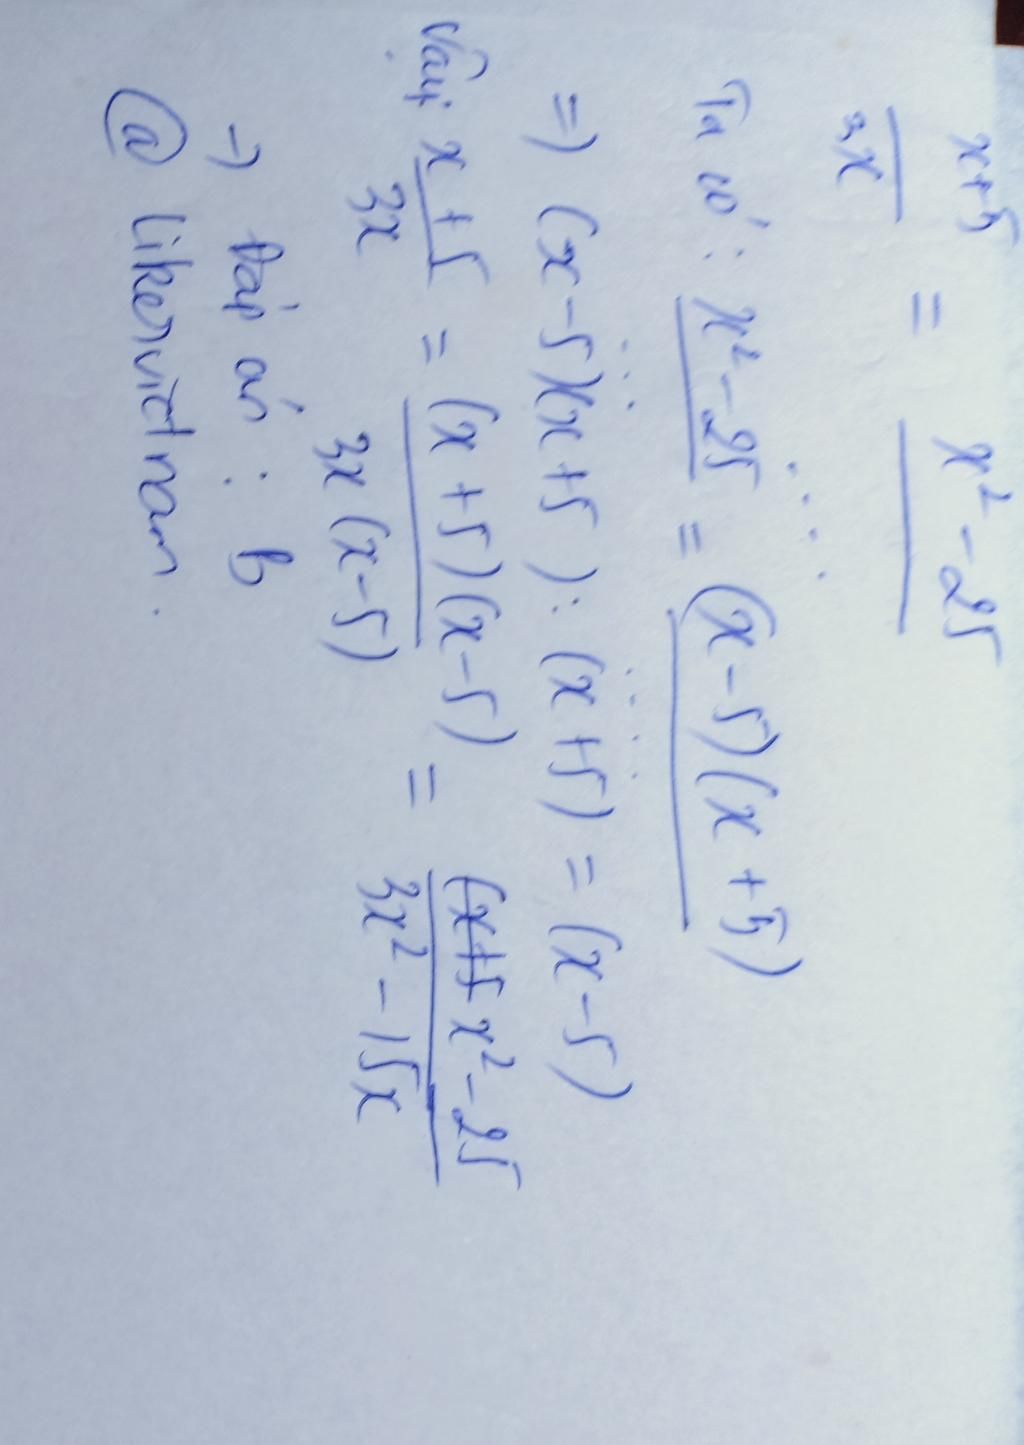 x+5 = x² - 25
3x
Ta có: x² - 25 = (x - 5)(x + 5)
=) (x - 5)(x + 5) : (x + 5) = (x - 5)
Vậy x + 5 = (x + 5)(x - 5) = (x+5 x² - 25
3x 3x (x - 5) 3x² - 15x
→ Đáp án : b
@ likeviệt nam.